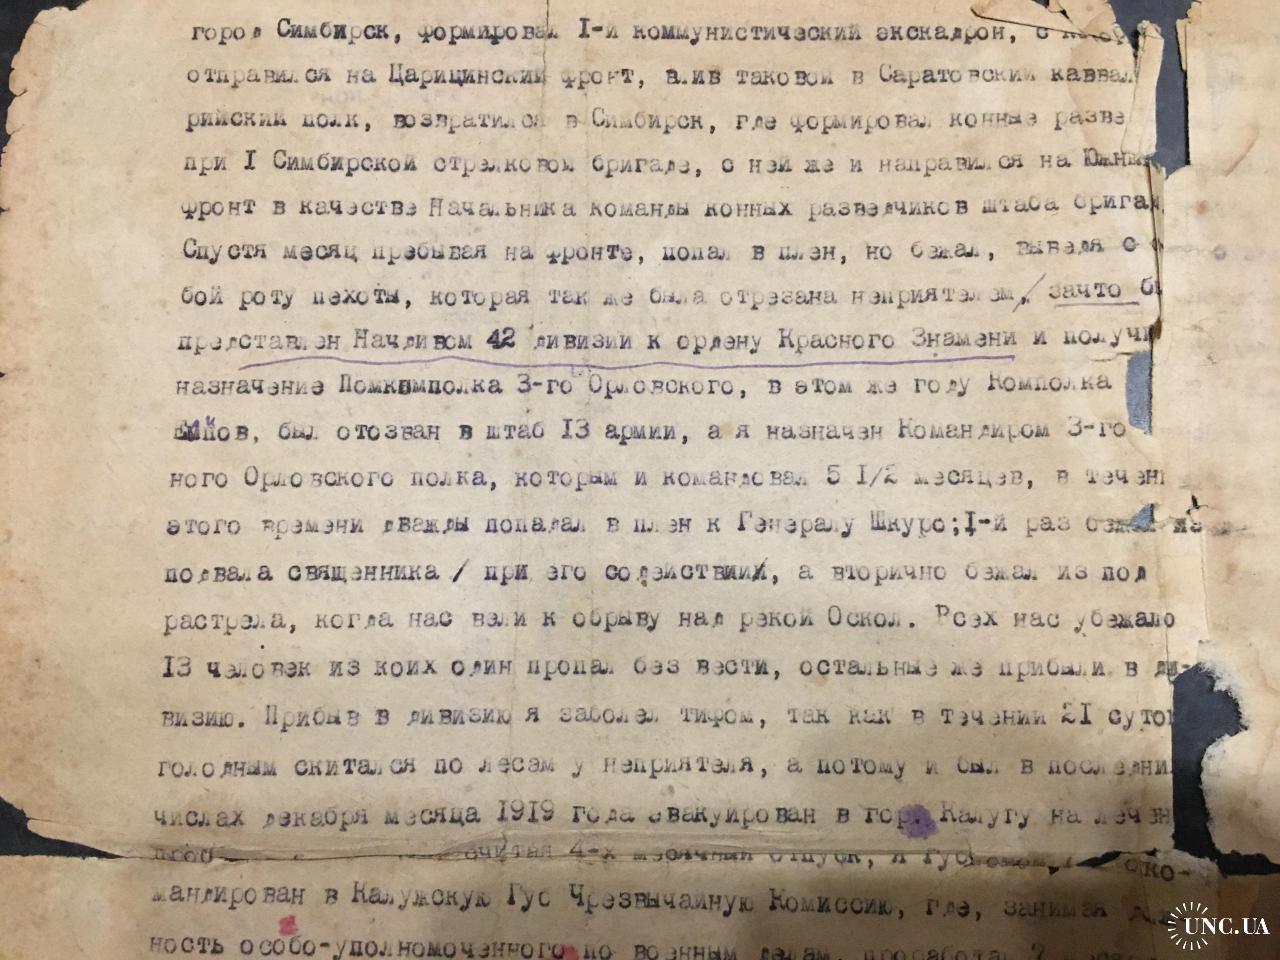 город Симбирск, формировал I-й коммунистический эскадрон, с
отправился на Царицинский фронт, влив таковой в Саратовский каввал
рийский полк, возвратился в Симбирск, где формировал конные разве
при I Симбирской стрелковой бригаде, с ней же и направился на Южны
фронт в качестве Начальника команды конных разведчиков штаба бригад
Спустя месяц пребывая на фронте, попал в плен, но бежал, выведя с с
бой роту пехоты, которая так же была отрезана неприятелем, зачто б
представлен Начдивом 42 дивизии к ордену Красного Знамени и получи
назначение Помкомполка 3-го Орловского, в этом же году Комполка
был отозван в штаб 13 армии, а я назначен Командиром 3-го
ного Орловского полка, которым и командовал 5 1/2 месяцев, в течени
этого времени дважды попадал в плен к Генералу Шкуро; I-й раз бежал из
подвала священника / при его содействии/, а вторично бежал из под
растрела, когда нас вели к обрыву над рекой Оскол. Всех нас убежало
13 человек из коих один пропал без вести, остальные же прибыли в ди-
визию. Прибыв в дивизию я заболел тифом, так как в течении 21 суток
голодным скитался по лесам у неприятеля, а потому и был в последни
числах декабря месяца 1919 года эвакуирован в гор. Калугу на лечен
считая 4-х месячный отпуск, я ко-
мандирован в Калужскую Губ Чрезвычайную Комиссию, где, занимая дол
ность особо-уполномоченного по военным делам, проработал 7
UNC.UA